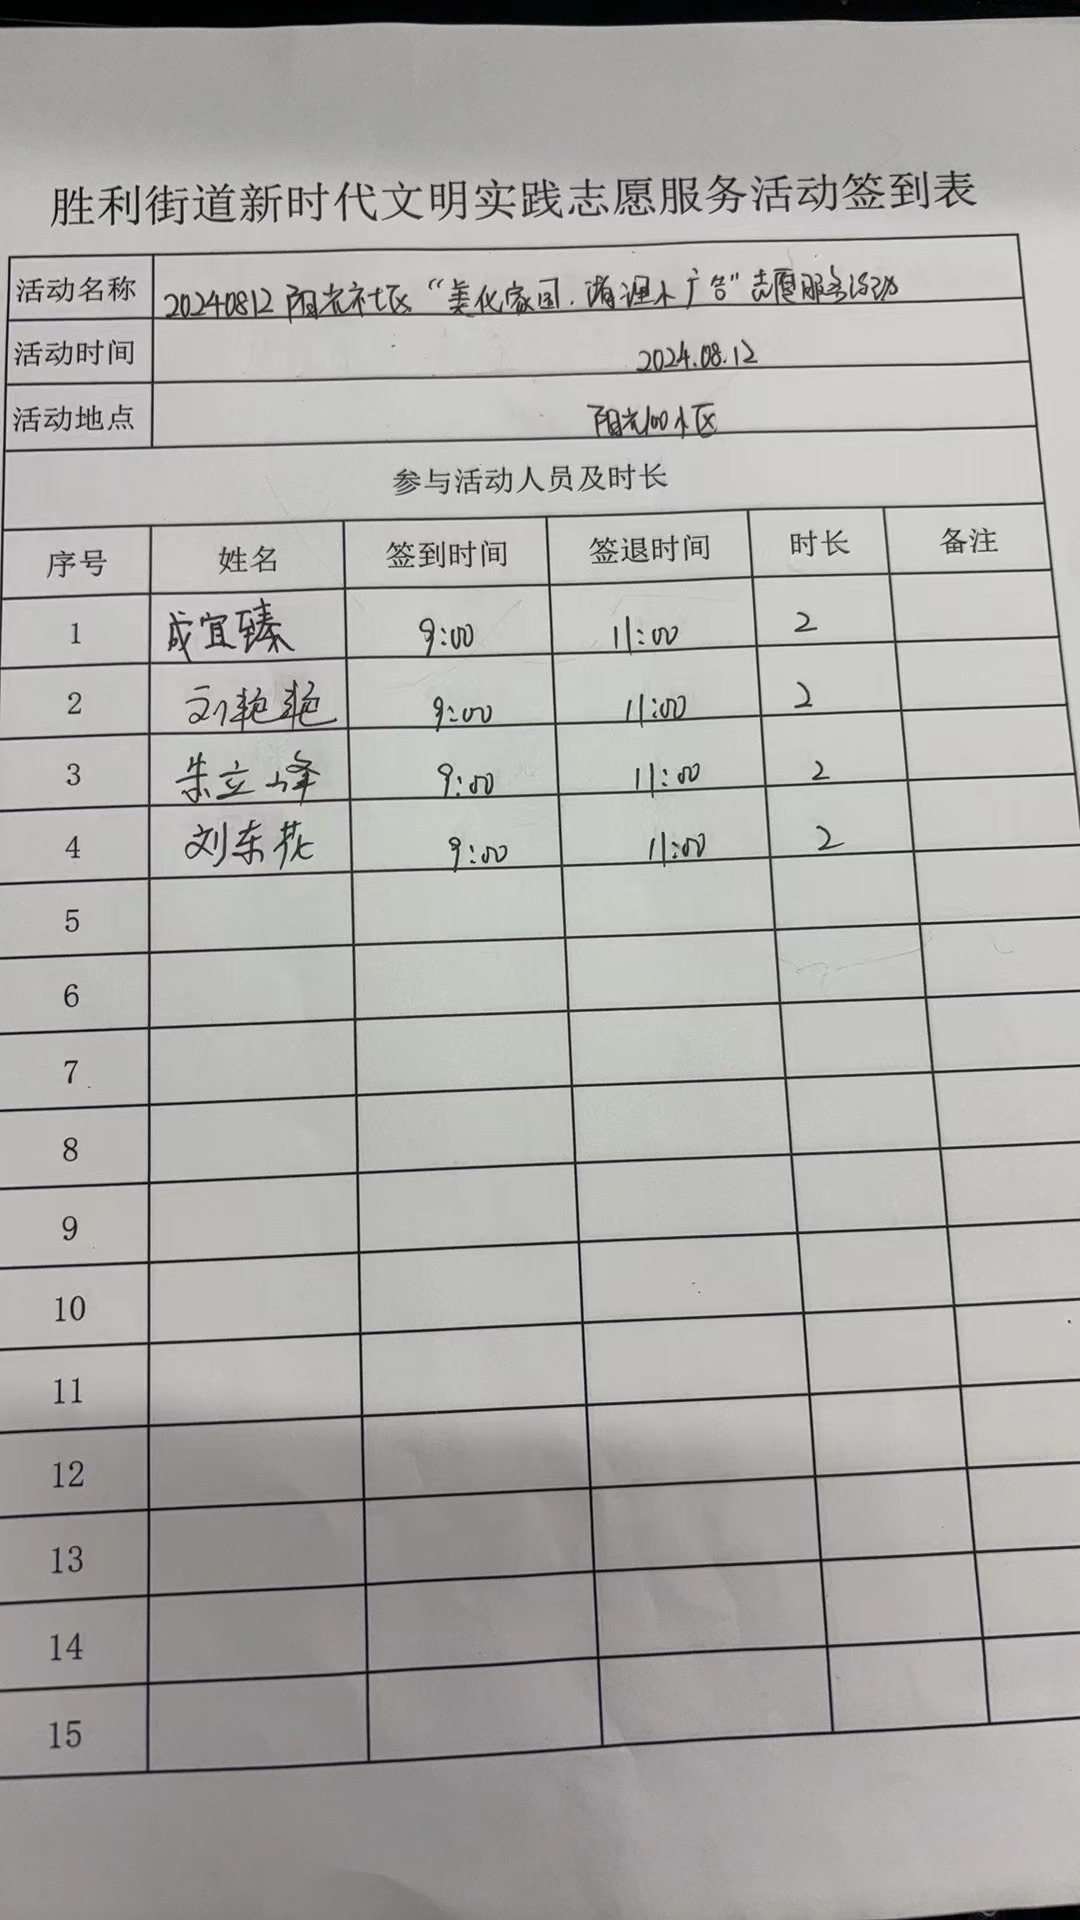 胜利街道新时代文明实践志愿服务活动签到表
活动名称 20240812阳光社区“美化家园.清理小广告”志愿服务活动
活动时间 2024.08.12
活动地点 阳光100小区
参与活动人员及时长
序号 姓名 签到时间 签退时间 时长 备注
1 成宜臻 9:00 11:00 2
2 刘艳艳 9:00 11:00 2
3 朱立峰 9:00 11:00 2
4 刘东花 9:00 11:00 2
5
6
7
8
9
10
11
12
13
14
15